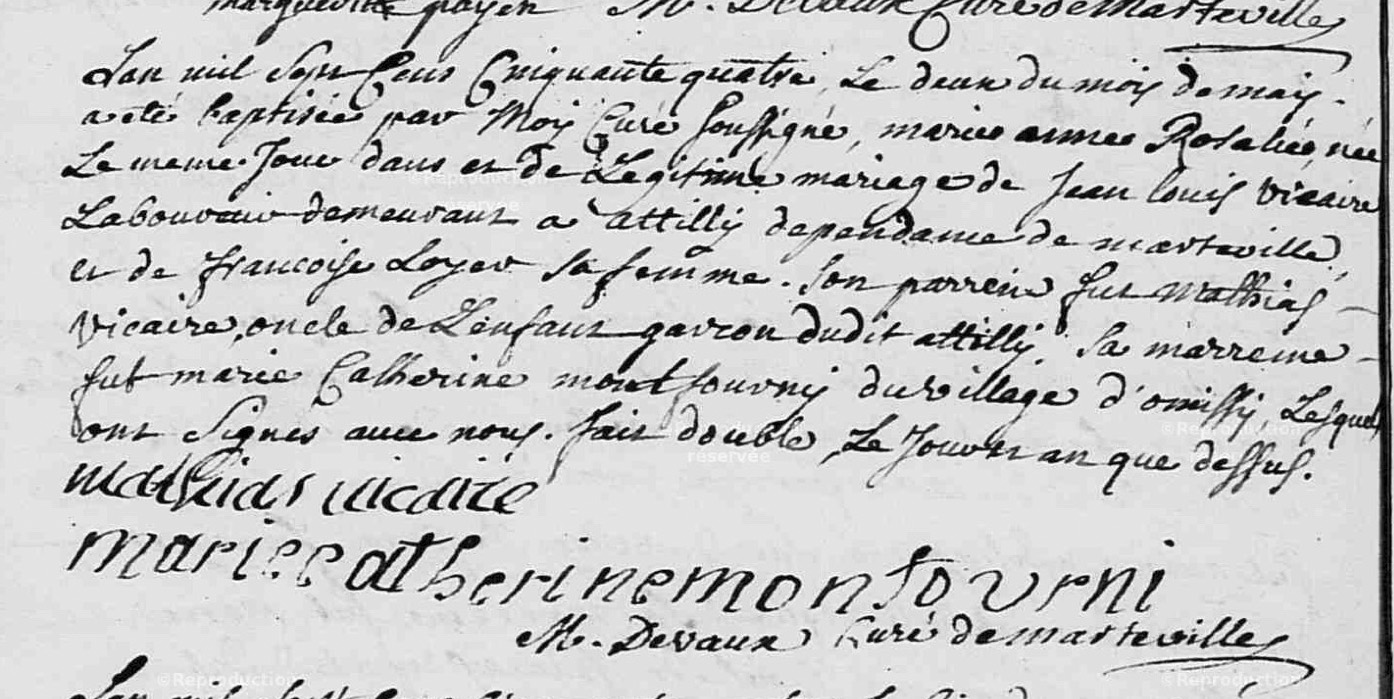 margueritte payen M. Devaux Curé de Marteville
Lan mil Sept Cens Cinquante quatre, Le deux du mois de may.
a eté baptisée par Moy Curé soussigné, marie anne Rosalie, née
Le meme Jour dans et de Legitime mariage de Jean louis vicaire
Laboureur demeurant a attilly dependance de marteville,
et de francoise Loyer sa femme. Son parrein fut Mathias
vicaire, oncle de L'enfant garcon dudit attilly. Sa marreine
fut marie Catherine montfourny du village d'omissy Lesquels
ont Signés avec nous. fait double, Le Jour et an que dessus.
mathias vicaire
marie catherine montourni
M. Devaux Curé de marteville